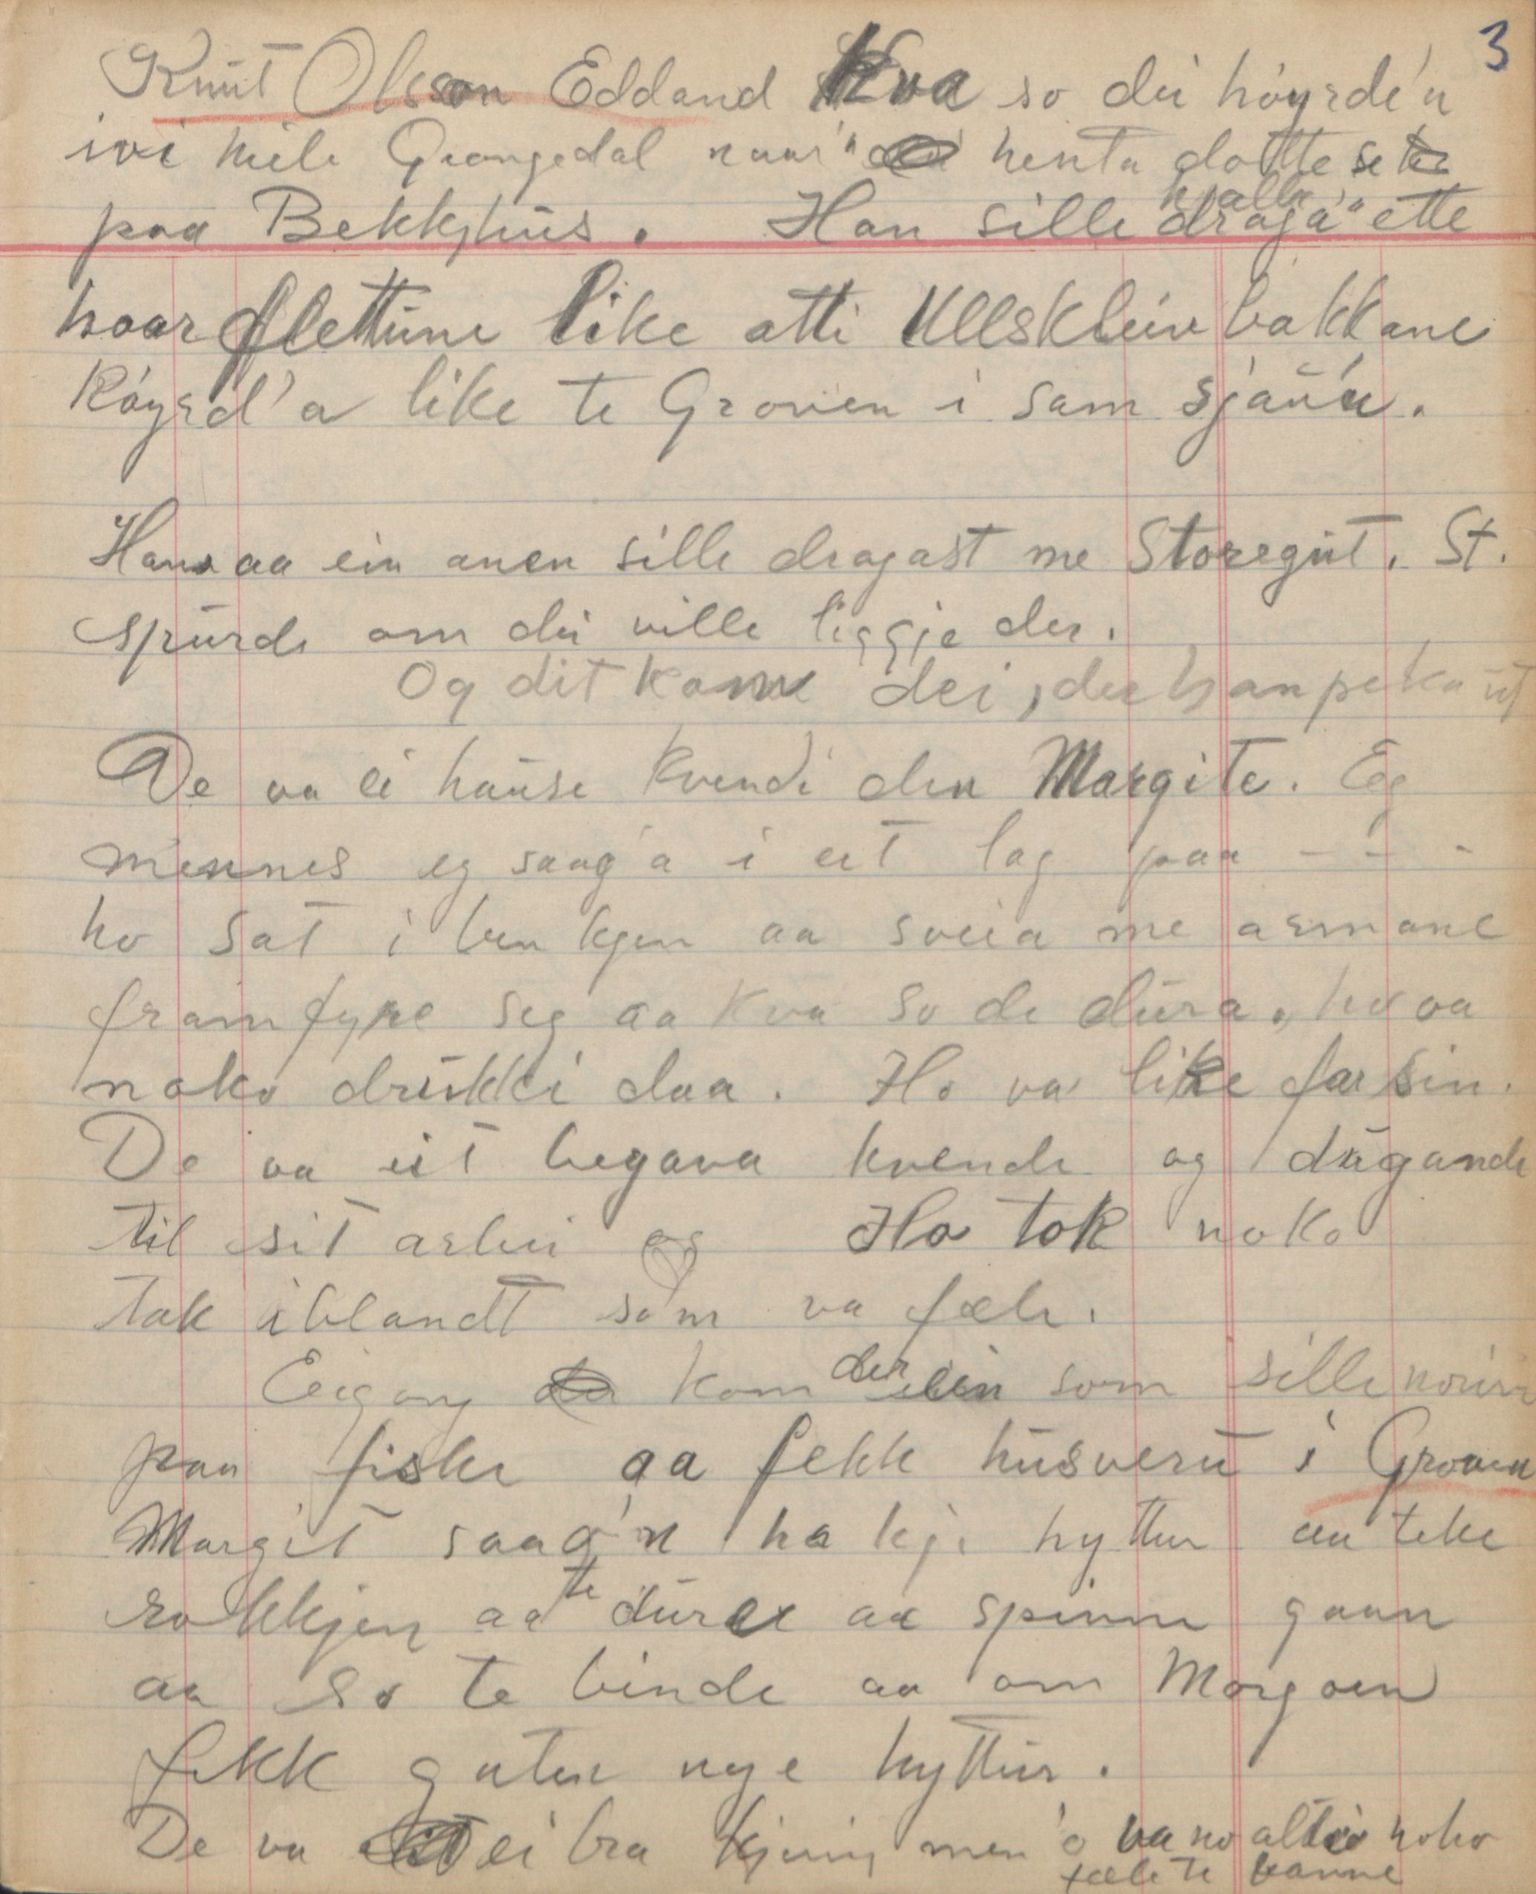 3
Knut Olsson Eddand Kva so dei høyrde'n
ivi heile Grungedal naar'n henta dotte se
paa Bekkhus. Han sille draga'a ette
haarflettune like atti Ullskleivbakkane
Køyrd'a like te Groven i sam sjaau'u.
Han aa ein anen sille dragast me Storegut. St.
spurde om dei ville liggje der.
Og dit kom dei, der han peka ut
De va ei hause kvendi den Margite. Eg
minnes eg saag'a i eit lag paa - - -
ho sat i benkjen aa sveia me armane
framfyre seg aa kva so de dura, ho va
noko drukki daa. Ho va like far sin.
De va eit begava kvende og dugande
til sit arbei og Ho tok noko
tak iblandt som va fæle.
Eigong kom der ein som sille
paa fiske aa fekk husveru i Groven
Margit saag'n ha kje hyttur aa teke
rokkjen aa te dura aa spinne gaan
aa so te binde aa om Morgoen
fekk guten nye hyttur.
De va ei bra kjering men 'o va no alti noko
fæle te banne